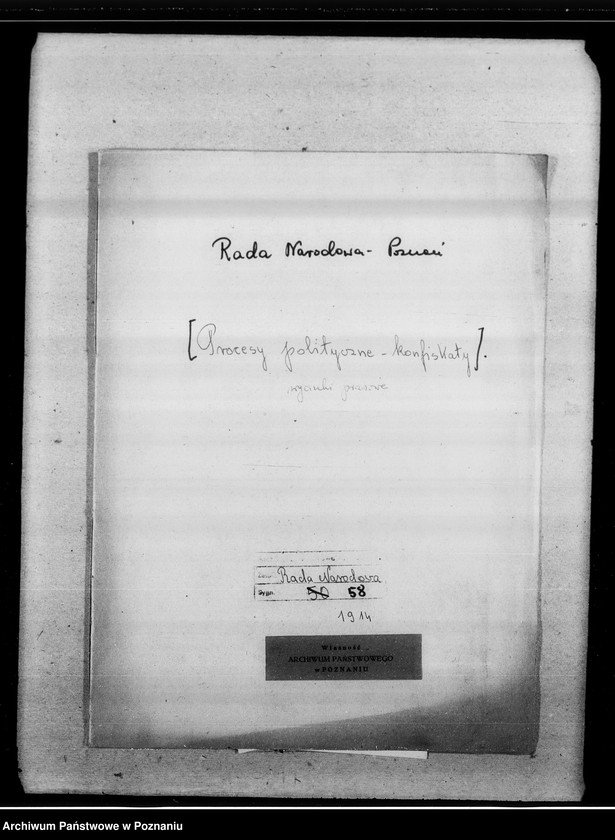 Rada Narodowa - Poznań
[Procesy polityczne - konfiskaty].
wycinki prasowe
Rada Narodowa
Sygn. 50 58
1914
Własność
ARCHIWUM PAŃSTWOWEGO
w POZNANIU
Archiwum Państwowe w Poznaniu